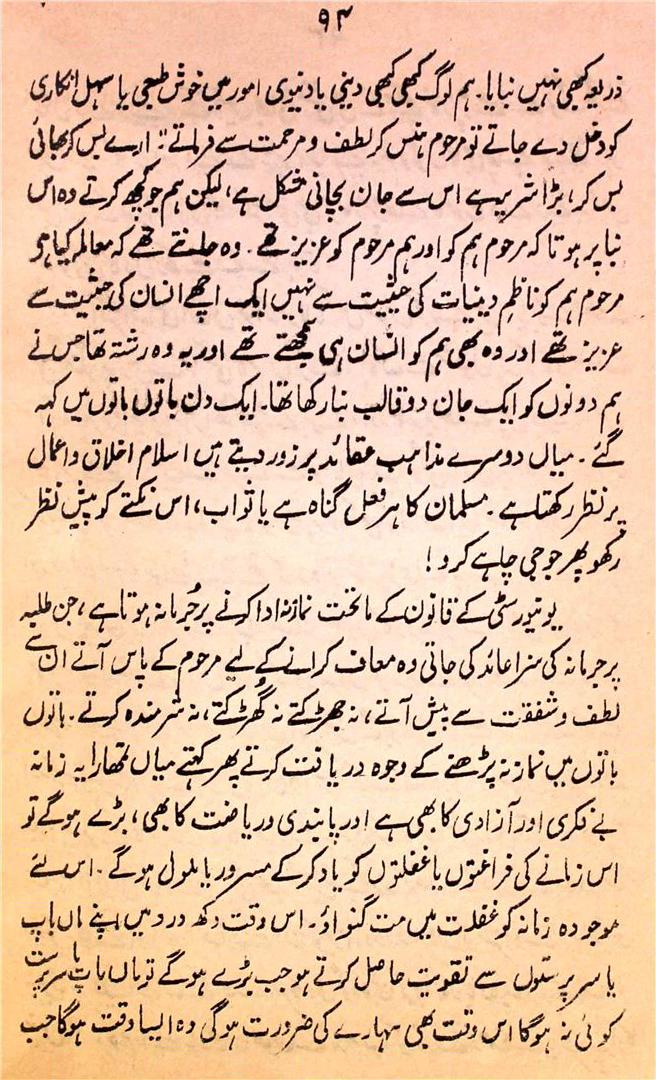 ۹۴
ذریعہ کبھی نہیں بنایا۔ ہم لوگ کبھی کبھی دینی یا دنیوی امور میں خوش طبعی یا سہل انکاری
کو دخل دے جاتے تو مرحوم ہنس کر لطف و مرحمت سے فرماتے: ارے بس کر بھائی
بس کر، بڑا شریر ہے اس سے جان بچانی مشکل ہے، لیکن ہم جو کچھ کرتے وہ اس
بنا پر ہوتا کہ مرحوم ہم کو اور ہم مرحوم کو عزیز تھے۔ وہ جانتے تھے کہ معاملہ کیا ہی
مرحوم ہم کو ناظم دینیات کی حیثیت سے نہیں ایک اچھے انسان کی حیثیت سے
عزیز تھے اور وہ بھی ہم کو انسان ہی سمجھتے تھے اور یہ وہ رشتہ تھا جس نے
ہم دونوں کو ایک جان دو قالب بنا رکھا تھا۔ ایک دن باتوں باتوں میں کہہ
گئے۔ میاں دوسرے مذاہب عقائد پر زور دیتے ہیں اسلام اخلاق و اعمال
پر نظر رکھتا ہے۔ مسلمان کا ہر فعل گناہ ہے یا ثواب، اس نکتے کو پیش نظر
رکھو پھر جو جی چاہے کرو!
یونیورسٹی کے قانون کے ماتحت نماز نہ ادا کرنے پر جُرمانہ ہوتا ہے، جن طلبہ
پر جرمانہ کی سزا عائد کی جاتی وہ معاف کرانے کے لیے مرحوم کے پاس آتے ان سے
لطف و شفقت سے پیش آتے، نہ جھڑکتے نہ گُھڑکتے، نہ شرمندہ کرتے۔ باتوں
باتوں میں نماز نہ پڑھنے کے وجوہ دریافت کرتے پھر کہتے میاں تمھارا یہ زمانہ
بے فکری اور آزادی کا بھی ہے اور پابندی و ریاضت کا بھی، بڑے ہوگے تو
اس زمانے کی فراغتوں یا غفلتوں کو یاد کر کے مسرور یا ملول ہوگے۔ اس لئے
موجودہ زمانہ کو غفلت میں مت گنواؤ۔ اس وقت دکھ درد میں اپنے ماں باپ
یا سرپرستوں سے تقویت حاصل کرتے ہو جب بڑے ہوگے تو ماں باپ یا سرپرست
کوئی نہ ہوگا اس وقت بھی سہارے کی ضرورت ہوگی وہ ایسا وقت ہوگا جب